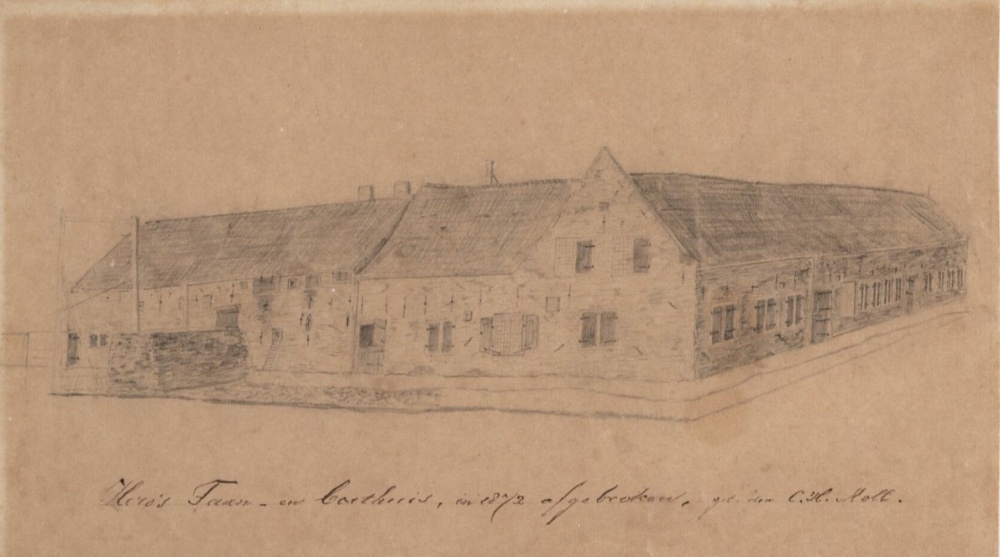 Taan- en Coethuis, in 1872 afgebroken, get. door C.H.